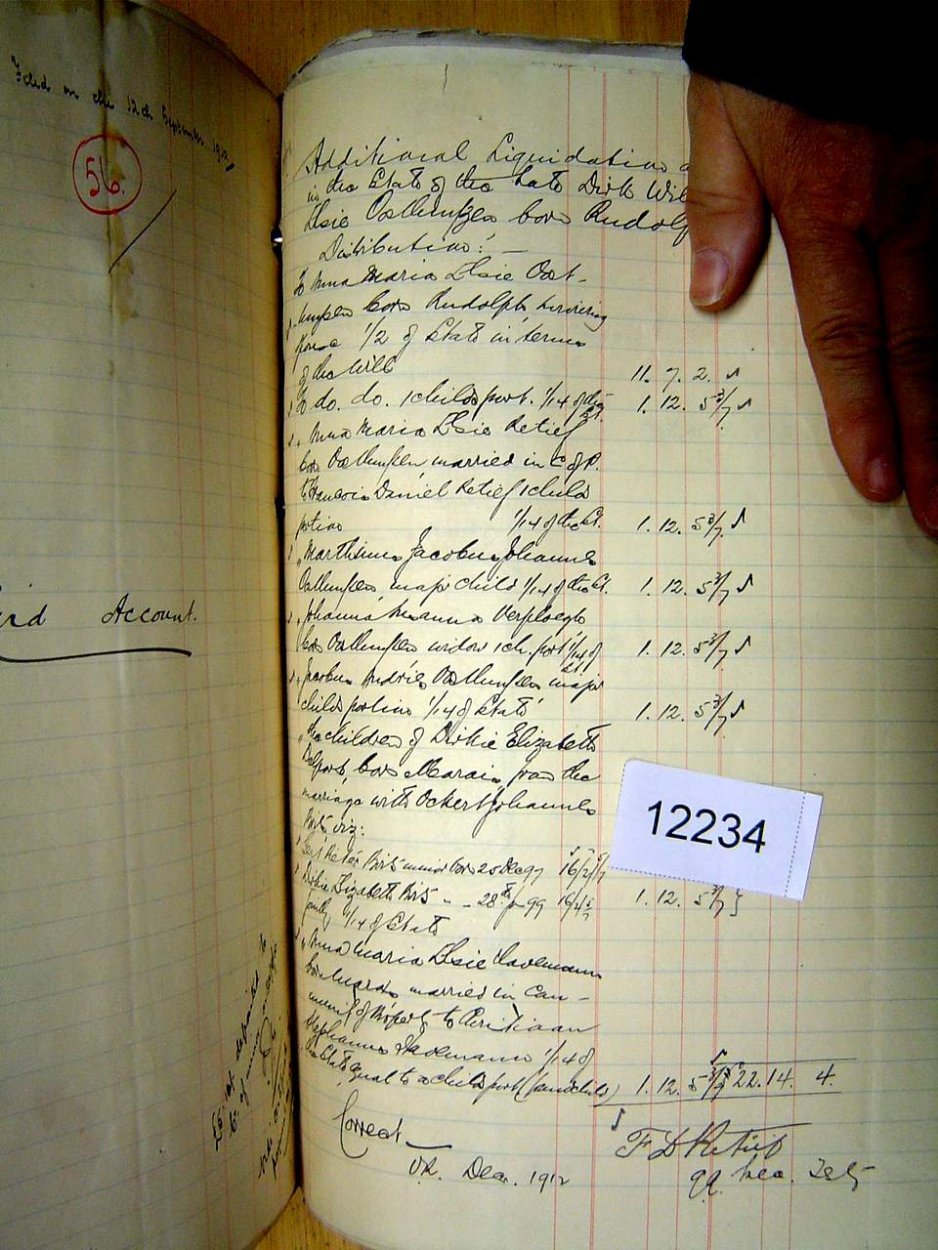 Filed on the 12th September 1912
56.
Third Account.
Additional Liquidation a
in the Estate of the Late Dirk Wil
Elsie Oosthuyzen born Rudolp
Distribution: —
To Anna Maria Elsie Oost-
huysen born Rudolph surviving
spouse 1/2 of Estate in terms
of the Will 11. 7. 2.
To do. do. 1 childs port. 1/14 of the Est. 1. 12. 5 3/7
" Anna Maria Elsie Retief
born Oosthuysen, married in C of P.
to Francois Daniel Retief 1 childs
portion 1/14 of the Est. 1. 12. 5 3/7
" Marthinus Jacobus Johannes
Oosthuysen, major child 1/14 of the Est. 1. 12. 5 3/7
" Johanna Susanna Verploegh
born Oosthuysen widow 1 ch. port 1/14 of Est. 1. 12. 5 3/7
" Jacobus Andries Oosthuysen major
childs portion 1/14 of Estate 1. 12. 5 3/7
" the children of Dirkie Elizabeth
born Marais, from the
marriage with Ockert Johannes
Brits viz:
Pieter Brits minor born 25 Dec 97 16/2
Dirkie Elizabeth Brits - - 28th 99 1. 12. 5 3/7
1/14 of Estate
" Anna Maria Elsie
born Marais married in Com-
munity of Property to Christiaan
Stephanus 1/14 of
the Estate equal to a childs port (grandchild) 1. 12. 5 3/7 22. 14. 4.
Correct
Dec. 1912
F D Retief
q.q. Exec. Test
12234
£5.16.1 deposited to
c. of minors